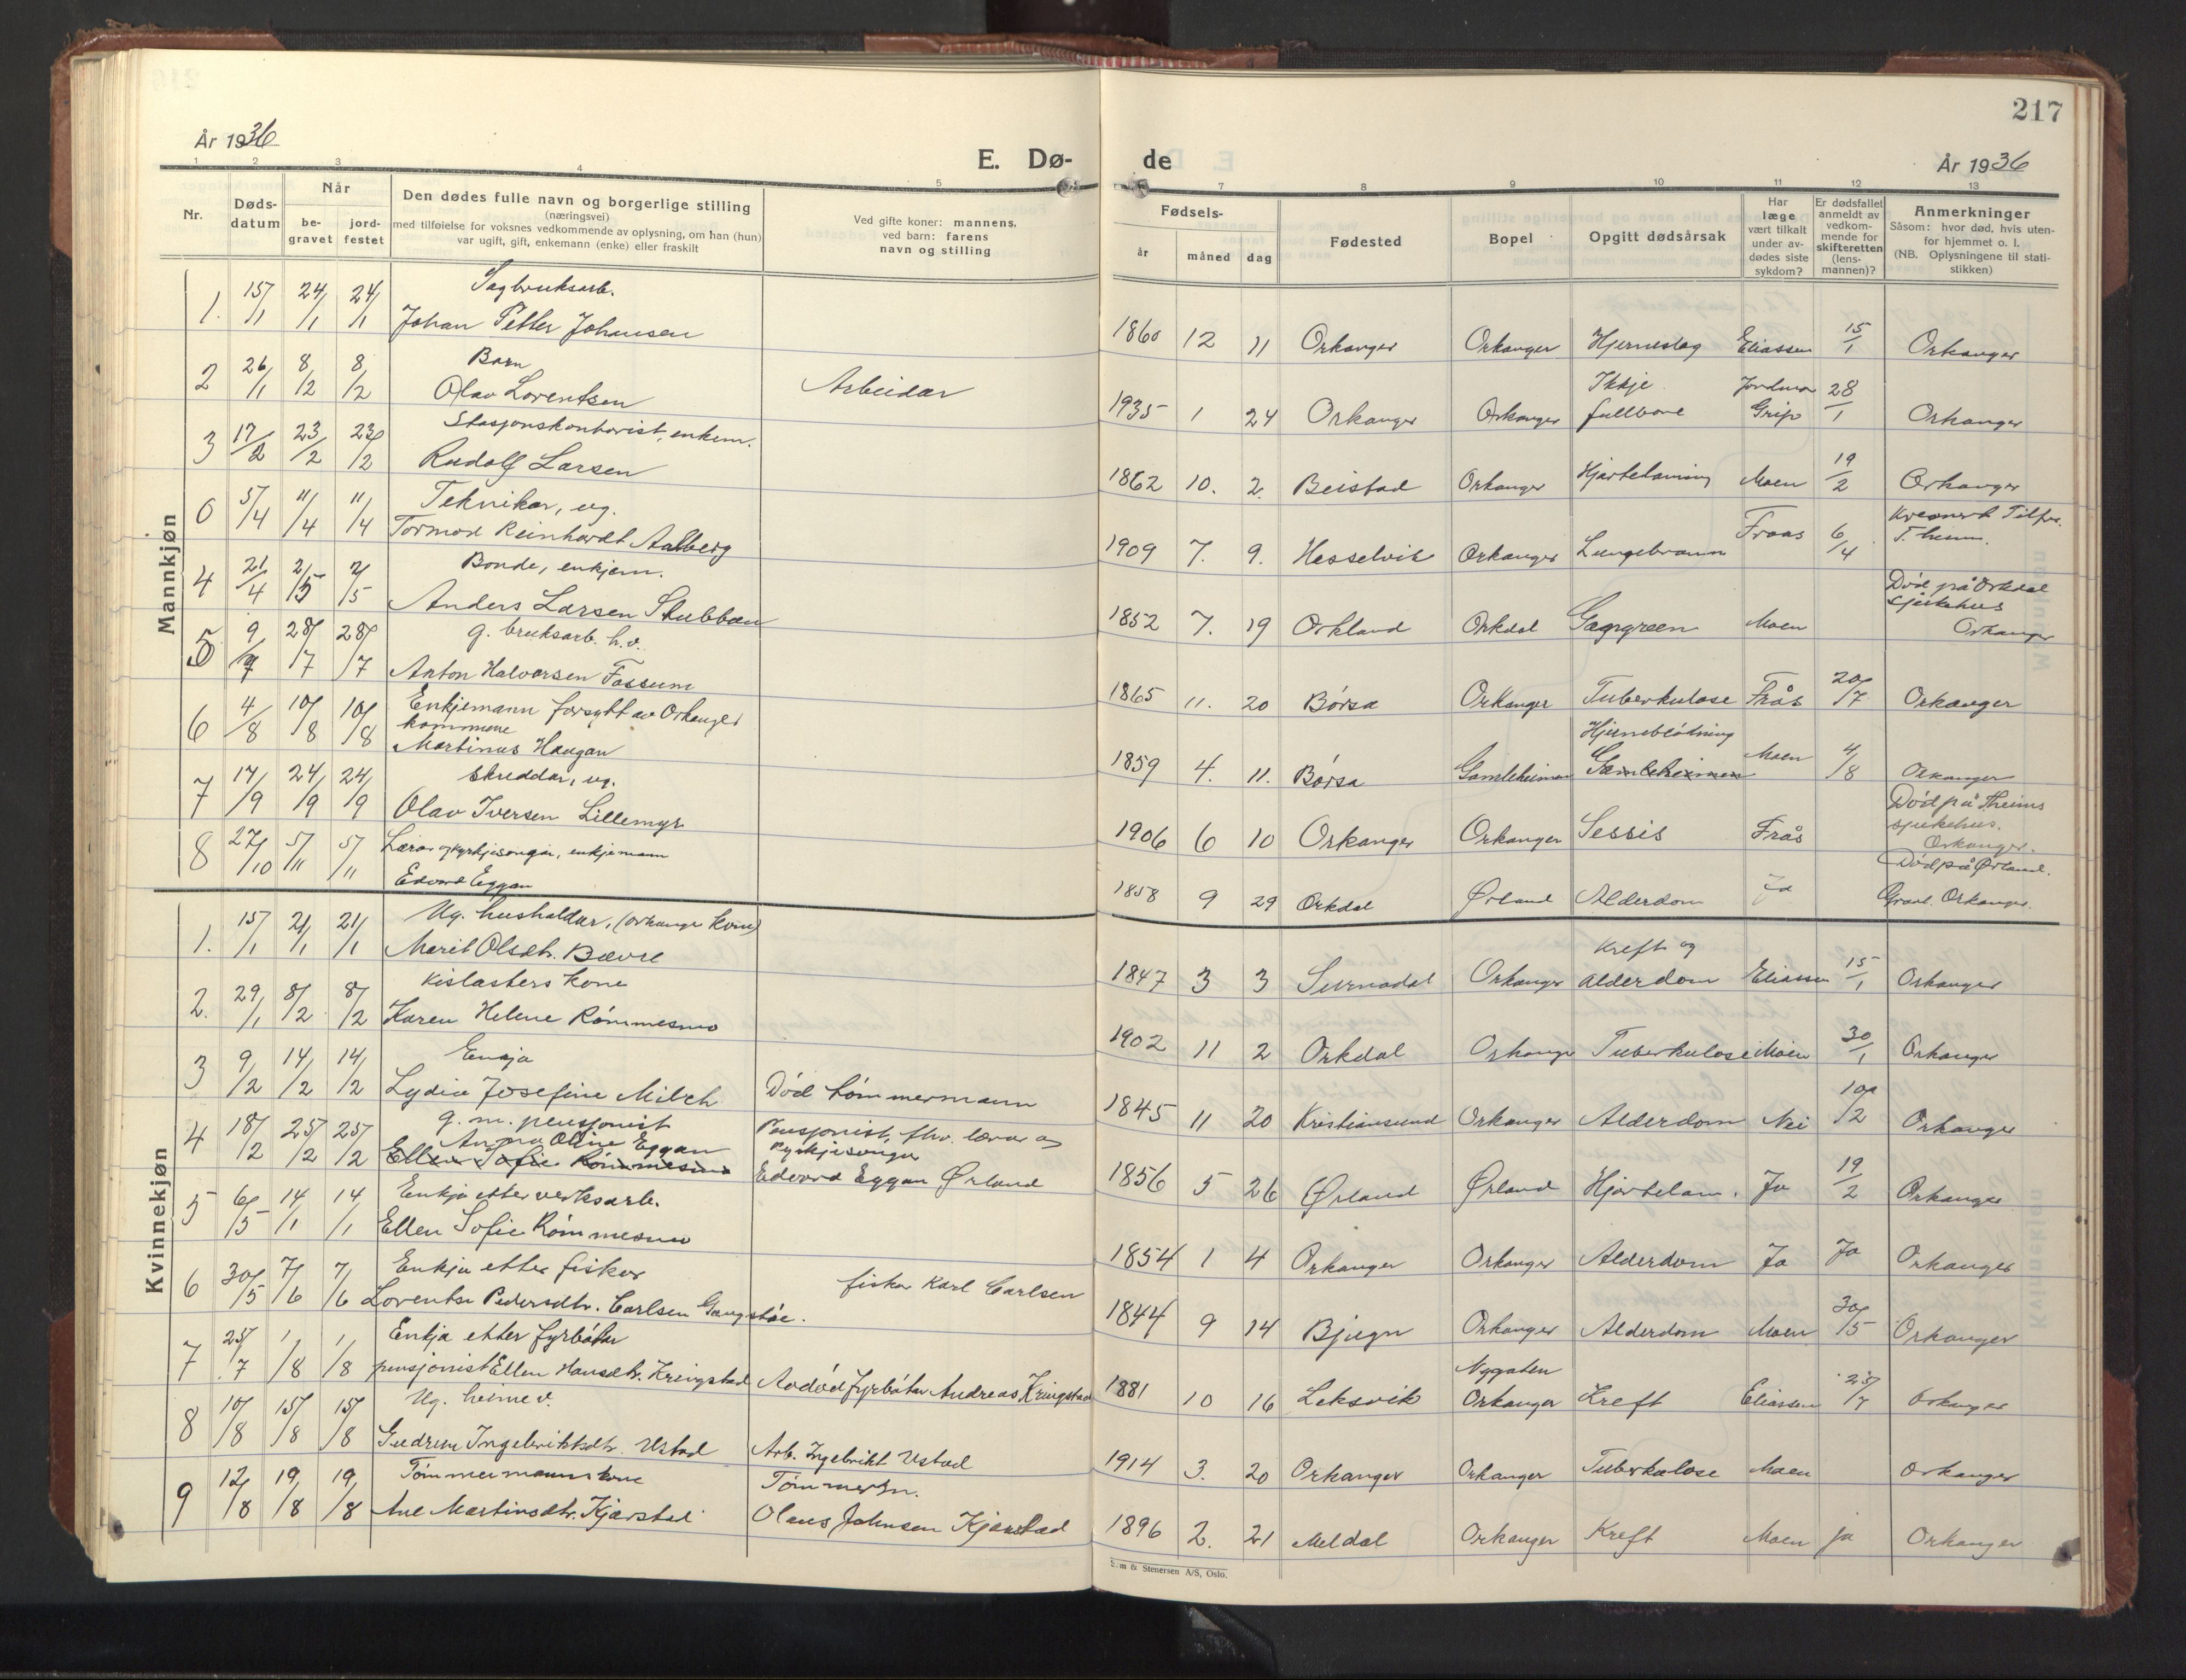 217
År 1936
E. Dø-
de
År 1936
1 2 3 4 5 7 8 9 10 11 12 13
Nr.
Døds-
datum
Når
be-
gravet
jord-
festet
Den dødes fulle navn og borgerlige stilling
(næringsvei)
med tilføielse for voksnes vedkommende av oplysning, om han (hun)
var ugift, gift, enkemann (enke) eller fraskilt
Ved gifte koner: mannens,
ved barn: farens
navn og stilling
Fødsels-
år måned dag
Fødested
Bopel
Opgitt dødsårsak
Har
læge
vært tilkalt
under av-
dødes siste
sykdom?
Er dødsfallet
anmeldt av
vedkom-
mende for
skifteretten
(lens-
mannen)?
Anmerkninger
Såsom: hvor død, hvis uten-
for hjemmet o. l.
(NB. Oplysningene til stati-
stikken)
Mannkjøn
Sagbruksarb.
1. 15/1 24/1 24/1 Johan Petter Johansen 1860 12 11 Orkanger Orkanger Hjerneslag Eliassen 15/1 Orkanger
Barn
2 26/1 8/2 8/2 Olav Lorentsen Arbeidar 1935 1 24 Orkanger Orkanger Ikkje fullbore Jordmor Grip 28/1 Orkanger
Stasjonskontorist, enkem.
3 17/2 23/2 23/2 Rudolf Larsen 1862 10. 2. Beistad Orkanger Hjartelaming Moen 19/2 Orkanger
Teknikar, ug.
0 5/4 11/4 11/4 Tormod Reinhardt Aalberg 1909 7. 9. Hesselvik Orkanger Lungebrann Fraas 6/4 T.heim.
Bonde, enkjem.
4 21/4 2/5 2/5 Anders Larsen Stubban 1852 7. 19 Orkland Orkdal Gangreen Moen Død på Orkdal sjukehus Orkanger
g. bruksarb. h.v.
5 9/7 28/7 28/7 Anton Halvorsen Fossum 1865 11. 20 Børsa Orkanger Tuberkulose Frås 20/7 Orkanger
Enkjemann forsytt av Orkanger
kommune
6 4/8 10/8 10/8 Martinus Haugan 1859 4. 11. Børsa Gamleheimen Hjernebløtning Gamleheimen Moen 4/8 Orkanger
Skreddar, ug.
7 17/9 24/9 24/9 Olav Iversen Lillemyr 1906 6 10 Orkanger Orkanger Sessis Frås Død på Theims sjukehus. Orkanger.
Lærar og kyrkjesongar, enkjemann
8 27/10 5/11 5/11 Edvard Eggan 1858 9 29 Orkdal Ørland Alderdom Ja Død på Ørland. Gravl. Orkanger.
Kvinnekjøn
Ug. husholdar, (Orkanger kom)
1. 15/1 21/1 21/1 Marit Olsdtr. Bævre 1847 3 3 Surnadal Orkanger Kreft og alderdom Eliassen 15/1 Orkanger
Kislasters kone
2. 29/1 8/2 8/2 Karen Helene Rømmesmo 1902 11 2 Orkdal Orkanger Tuberkulose Moen 30/1 Orkanger
Enkja
3 9/2 14/2 14/2 Lydia Josefine Milch Død tømmermann 1845 11 20 Kristiansund Orkanger Alderdom Nei 10/2 Orkanger
g. m. pensjonist
4 18/2 25/2 25/2 Anna Oline Eggan Pensjonist, fhv. lærar og kyrkjesonger
Ellen Sofie Rømmesmo Edvard Eggan Ørland 1856 5 26 Ørland Ørland Hjartelam. Ja 19/2 Orkanger
Enkja etter verksarb.
5 6/5 14/1 14/1 Ellen Sofie Rømmesmo 1854 1 4 Orkanger Orkanger Alderdom Ja Ja Orkanger
Enkja etter fisker
6 30/5 7/6 7/6 Lorentse Pedersdtr. Carlsen Gangstøe. fisker Karl Carlsen 1844 9 14 Bjugn Orkanger Alderdom Moen 30/5 Orkanger
Enkja etter fyrbøter
7 25/7 1/8 1/8 pensjonist Ellen Hansdtr. Kringstad Avdød fyrbøter Andreas Kringstad 1881 10 16 Leksvik Nygaten Orkanger Kreft Eliassen 25/7 Orkanger
Ug. heime v.
8 10/8 15/8 15/8 Gudrun Ingebriktsdtr. Ustad Arb. Ingebrikt Ustad 1914 3. 20 Orkanger Orkanger Tuberkulose Moen Orkanger
Tømmermanns kone
9 12/8 19/8 19/8 Ane Martinsdtr. Kjærstad Tømmerm. Olaus Johnsen Kjærstad 1896 2. 21 Meldal Orkanger Kreft Moen ja Orkanger
m & Stenersen A/S, Oslo.